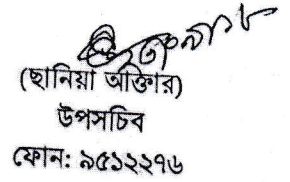 (ছানিয়া আক্তার)
উপসচিব
ফোন: ৯৫১২২৭৬